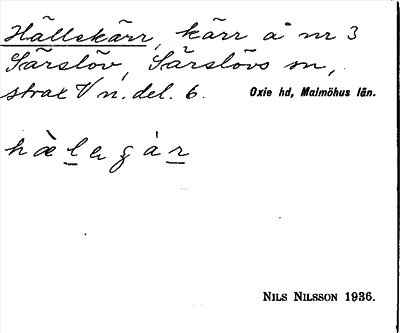 Hällekärr, kärr å nr 3
Särslöv, Särslövs sn,
strax V n. del. 6. Oxie hd, Malmöhus län.
NILS NILSSON 1936.